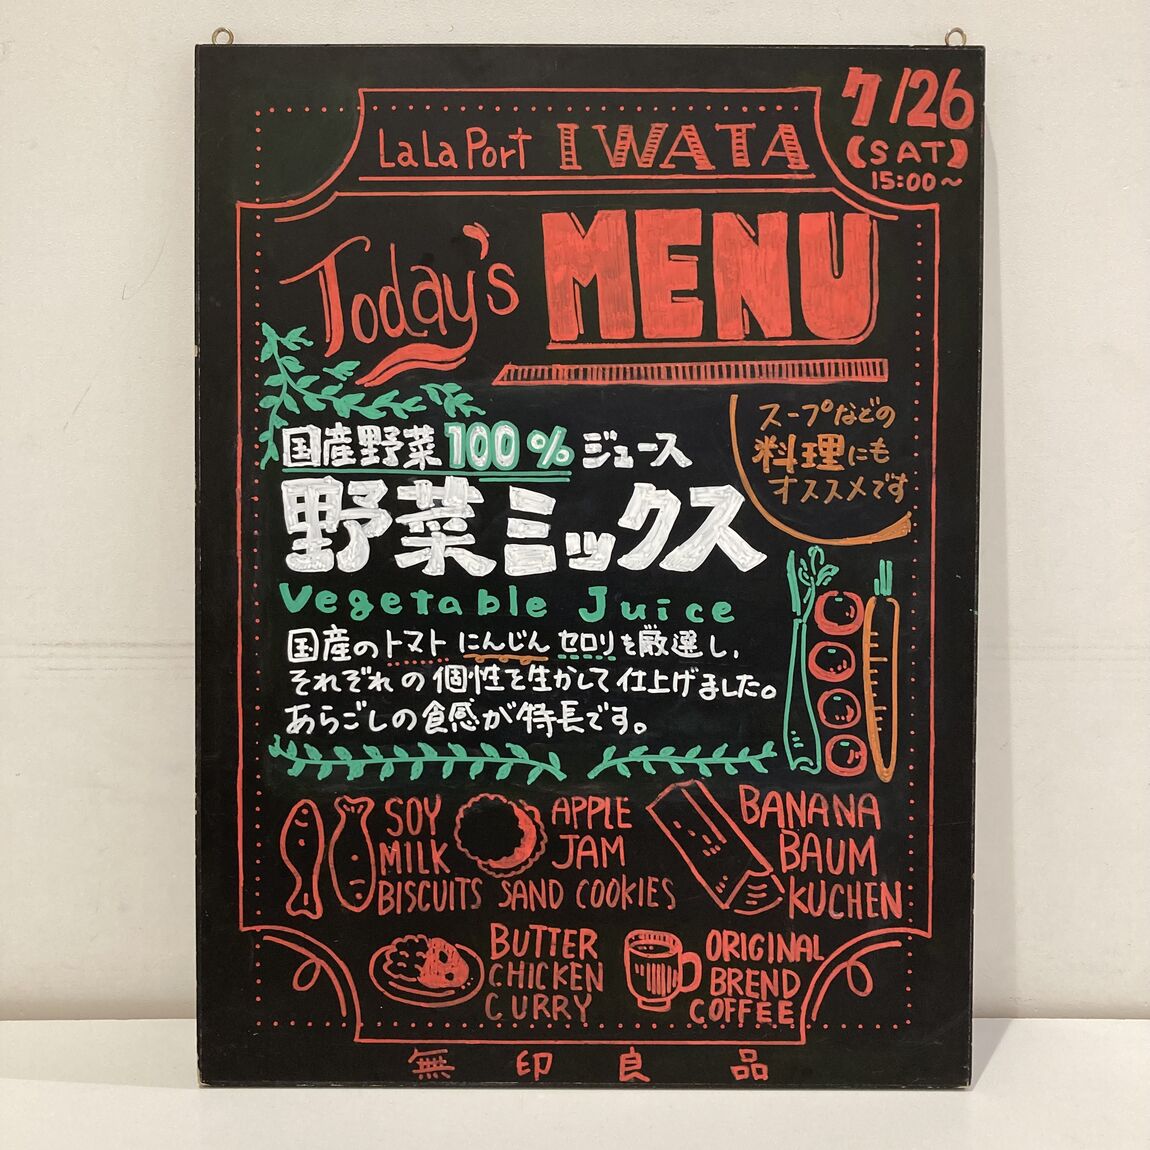 LaLa Port IWATA
7/26
(SAT)
15:00~
Today's MENU
国産野菜100%ジュース
野菜ミックス
Vegetable Juice
スープなどの
料理にも
オススメです
国産のトマトにんじんセロリを厳選し、
それぞれの個性を生かして仕上げました。
あらごしの食感が特長です。
SOY
MILK
BISCUITS
APPLE
JAM
SAND COOKIES
BANANA
BAUM
KUCHEN
BUTTER
CHICKEN
CURRY
ORIGINAL
BREND
COFFEE
無印良品